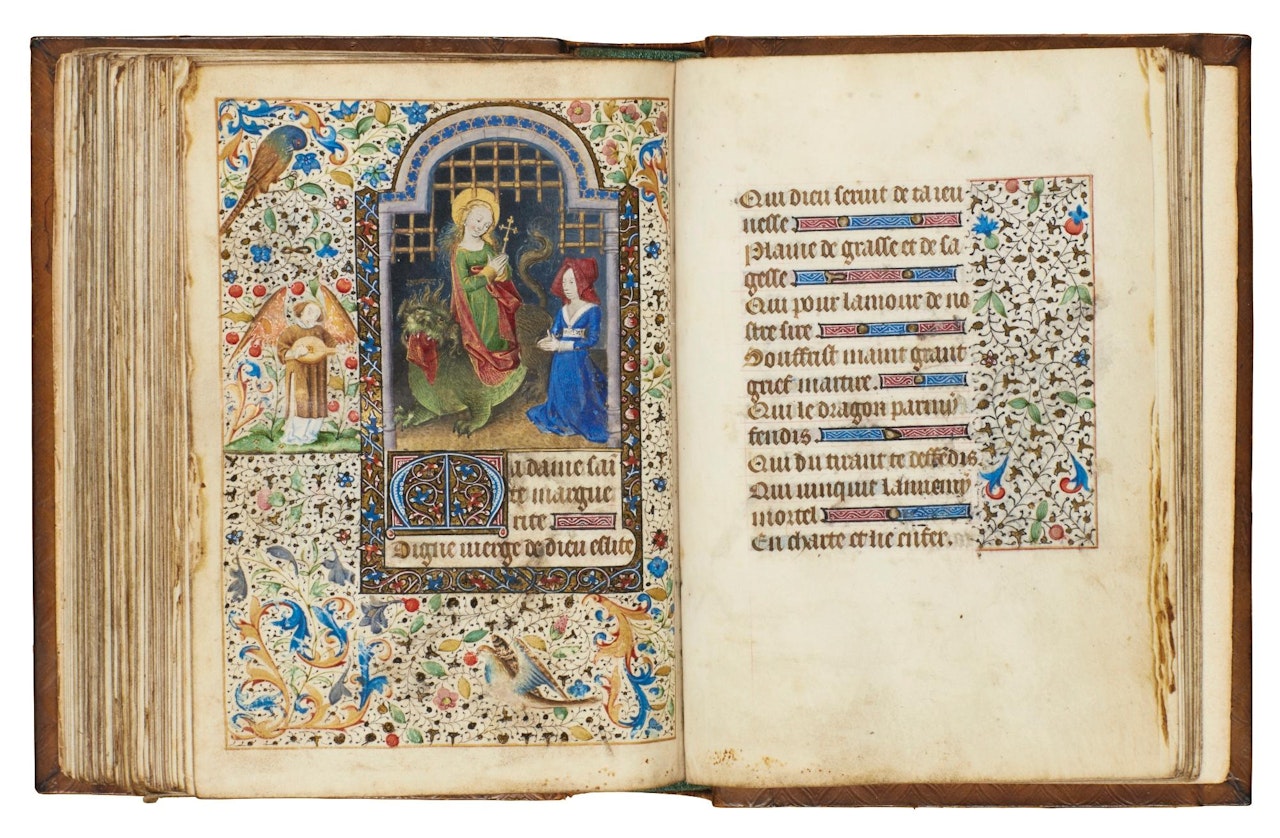 Ma dame sai
te margue
rite
Digne vierge de dieu eslite
Qui dieu servit de ta ieu
nesse
Plaine de grasse et de sa
gesse
Qui pour lamour de no
stre sire
Souffrist maint grant
grief martire.
Qui le dragon parmy
fendis.
Qui du tirant te deffendis
Qui vinquit lannemy
mortel
En chartre et lie enfer.